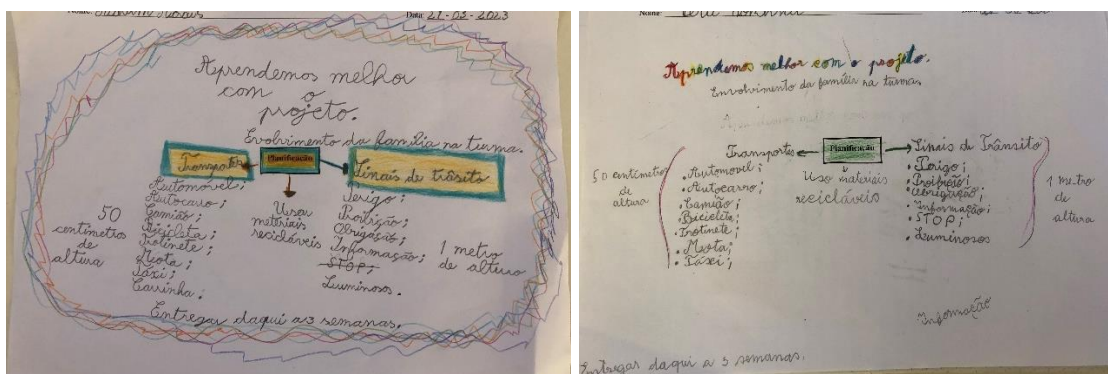 Data: 21-03-2023
Aprendemos melhor
com o
projeto.
Evolvimento da família na turma.
Transportes
Planificação
Sinais de trânsito
Automóvel;
Autocarro;
Camião;
Bicicleta;
Trotinete;
Mota;
Táxi;
Carrinha;
50
centímetros
de
altura
Usar
materiais
recicláveis
Perigo;
Proibição;
Obrigação;
Informação;
STOP;
Luminosos.
1 metro
de altura
Entregar daqui a 3 semanas.
Nome:
Aprendemos melhor com o projeto.
Envolvimento da família na turma.
Transportes
Planificação
Sinais de Trânsito
50 centímetros
de
altura
• Automovel;
• Autocarro;
• Camião;
Bicicleta;
• Trotinete;
• Mota;
• Táxi;
Uso materiais
recicláveis
• Perigo;
• Proibição;
• Obrigação;
• Informação;
• STOP;
• Luminosos
1 metro
de
altura
Informação
Entregar daqui a 3 semanas.